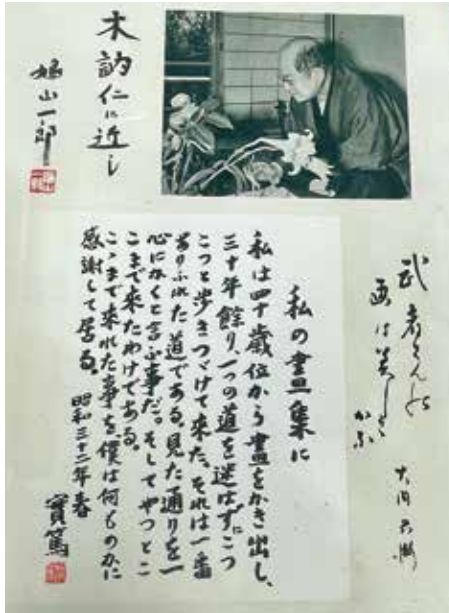 木訥仁に近し
鳩山一郎
武者さんの
画は
私の畫集に
私は四十歳位から畫をかき出し、
三十年餘り、一つの道を迷はずにこつ
こつと歩きつゞけて来た。それは一番
ありふれた道である。見た通りを一
心にかくと言ふ事だ。そしてやつとこ
こまで来たわけである。
こゝまで来れた事を、僕は何ものかに
感謝して居る。
昭和三十二年春
實篤